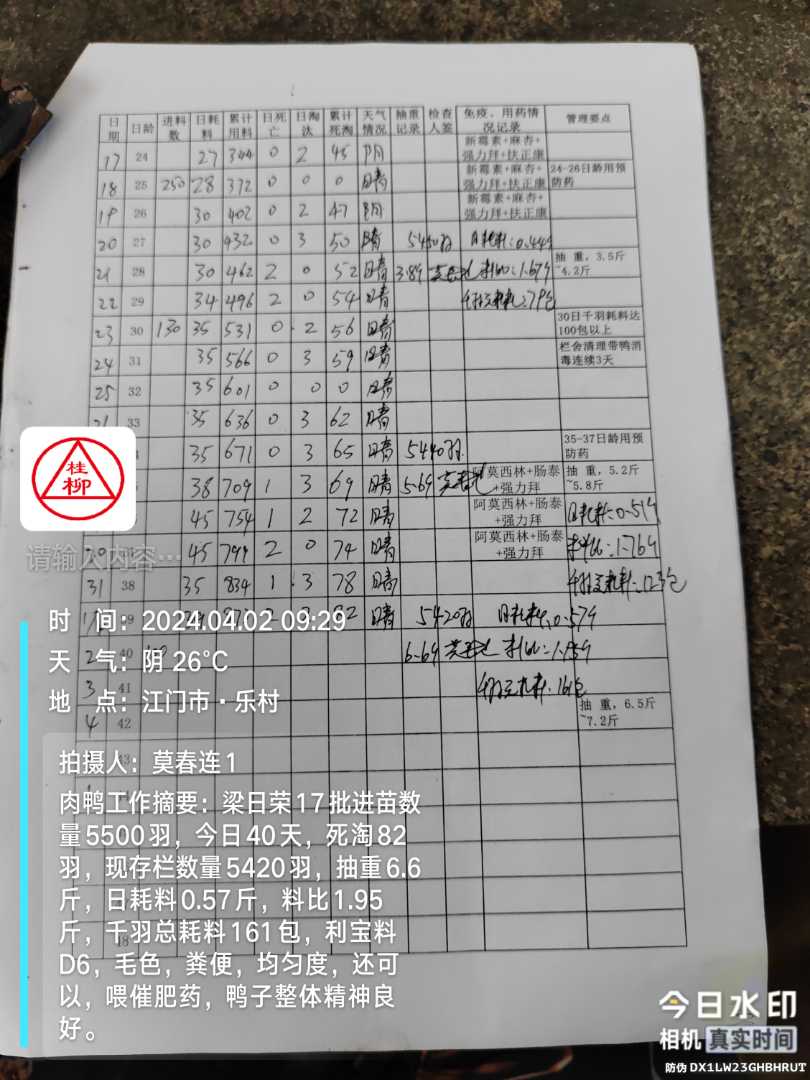 日期 日龄 进料数 日耗料 累计用料 日死亡 日淘汰 累计死淘 天气情况 抽重记录 检查人签 免疫、用药情况记录 管理要点
17 24 27 344 0 2 45 阴 新霉素+麻杏+强力拜+扶正康
18 25 250 28 372 0 0 0 晴 新霉素+麻杏+强力拜+扶正康 24-26日龄用预防药
19 26 30 402 0 2 47 阴 新霉素+麻杏+强力拜+扶正康
20 27 30 432 0 3 50 晴 5450羽 日耗料:0.44斤
21 28 30 462 2 0 52 晴 3.8斤 料比:1.67斤 抽 重，3.5斤~4.2斤
22 29 34 496 2 0 54 晴 79包
23 30 130 35 531 0 2 56 晴 30日千羽耗料达100包以上
24 31 35 566 0 3 59 晴 栏舍清理带鸭消毒连续3天
25 32 35 601 0 0 0 晴
33 35 636 0 3 62 晴
35 671 0 3 65 晴 5440羽 35-37日龄用预防药
38 709 1 3 69 晴 5.6斤 阿莫西林+肠泰+强力拜 抽 重，5.2斤~5.8斤
45 754 1 2 72 晴 阿莫西林+肠泰+强力拜 日耗料:0.51斤
45 799 2 0 74 晴 阿莫西林+肠泰+强力拜 料比:1.76斤
31 38 35 834 1 3 78 晴 千羽总耗料:123包
82 晴 5420羽 日耗料:0.57斤
2 40 6.6斤 料比:1.95斤
3 41 千羽总耗料:161包
4 42 抽 重，6.5斤~7.2斤
桂柳
请输入内容…
时 间：2024.04.02 09:29
天 气：阴 26℃
地 点：江门市·乐村
拍摄人：莫春连1
肉鸭工作摘要：梁日荣17批进苗数
量5500羽，今日40天，死淘82
羽，现存栏数量5420羽，抽重6.6
斤，日耗料0.57斤，料比1.95
斤，千羽总耗料161包，利宝料
D6，毛色，粪便，均匀度，还可
以，喂催肥药，鸭子整体精神良
好。
今日水印
相机 真实时间
防伪 DX1LW23GHBHRUT